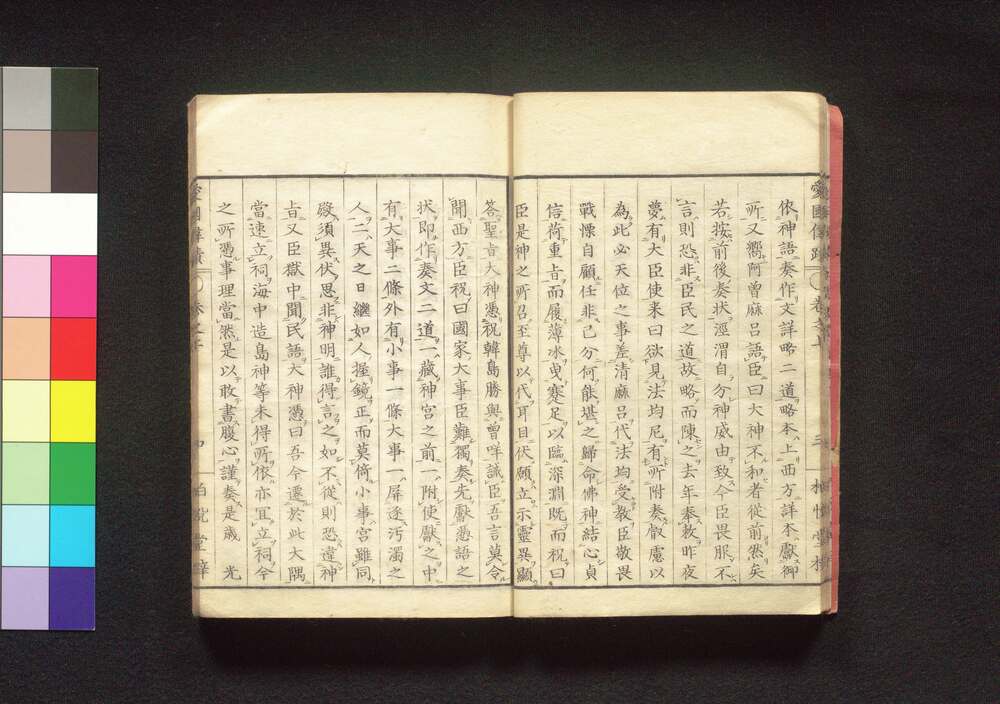 愛國偉蹟 卷之上 三
依神語奏作文詳略二道略本上西方詳本獻御
所又嚮阿曾麻呂語臣曰大神不和者從前然矣
若按前後奏狀涇渭自分神威由致今臣畏服不
言則恐非臣民之道故略而陳之去年奉教昨夜
夢有大臣使来曰欲見法均尼有所附奏叡慮以
為此必天位之事差清麻呂代法均受教臣敬畏
戰慄自顧任非己分何能堪之歸命佛神結心貞
信荷重旨而履薄冰曳蹇足以臨深淵既而祝曰
臣是神之所召至尊以代耳目伏願立示靈異顯
答聖旨大神憑祝韓島勝與曾咩誡臣吾言莫令
聞西方臣祝曰國家大事臣難獨奏先獻憑語之
状即作奏文二道一藏神宮之前一附使獻之中
有大事二條外有小事一條大事一屏逐汚濁之
人二天之日繼如人握鏡正而莫倚小事宮雖同
發須異伏思非神明誰得言之如不從則恐違神
旨又臣獄中聞民語大神憑曰吾今遷於此大隅
當速立祠海中造島神等未得所依亦宜立祠今
之所憑事理當然是以敢書腹心謹奏是歳 光
愛國偉蹟